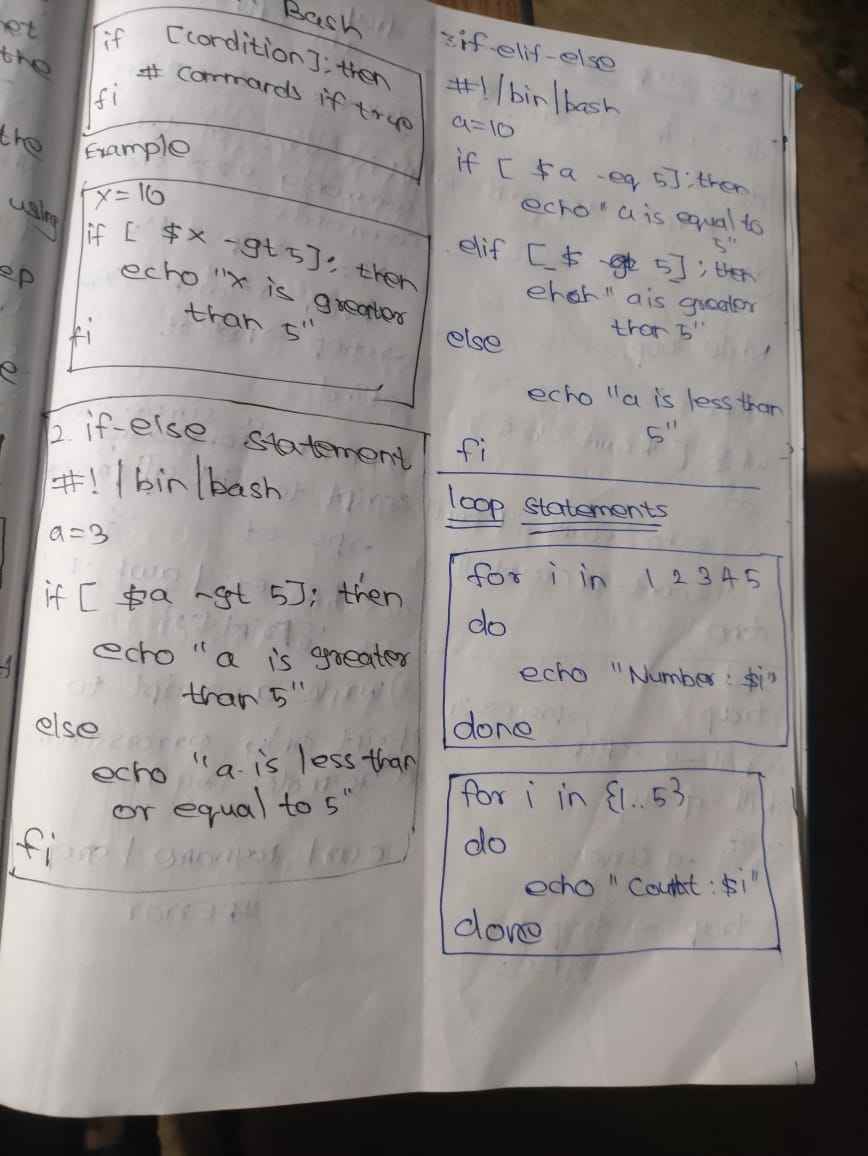 et
the
the
using
ep
e
Bash
if [condition]; then
# commands if true
fi
Example
x=10
if [ $x -gt 5]; then
echo "x is greater
than 5"
fi
2. if-else statement
#!/bin/bash
a=3
if [ $a -gt 5]; then
echo "a is greater
than 5"
else
echo "a is less than
or equal to 5"
fi
3if-elif-else
#!/bin/bash
a=10
if [ $a -eq 5]; then
echo "a is equal to
5"
elif [ $ -gt 5]; then
ehoh "a is greater
than 5"
else
echo "a is less than
5"
fi
loop statements
for i in 1 2 3 4 5
do
echo "Number: $i"
done
for i in {1..5}
do
echo "Count: $i"
done